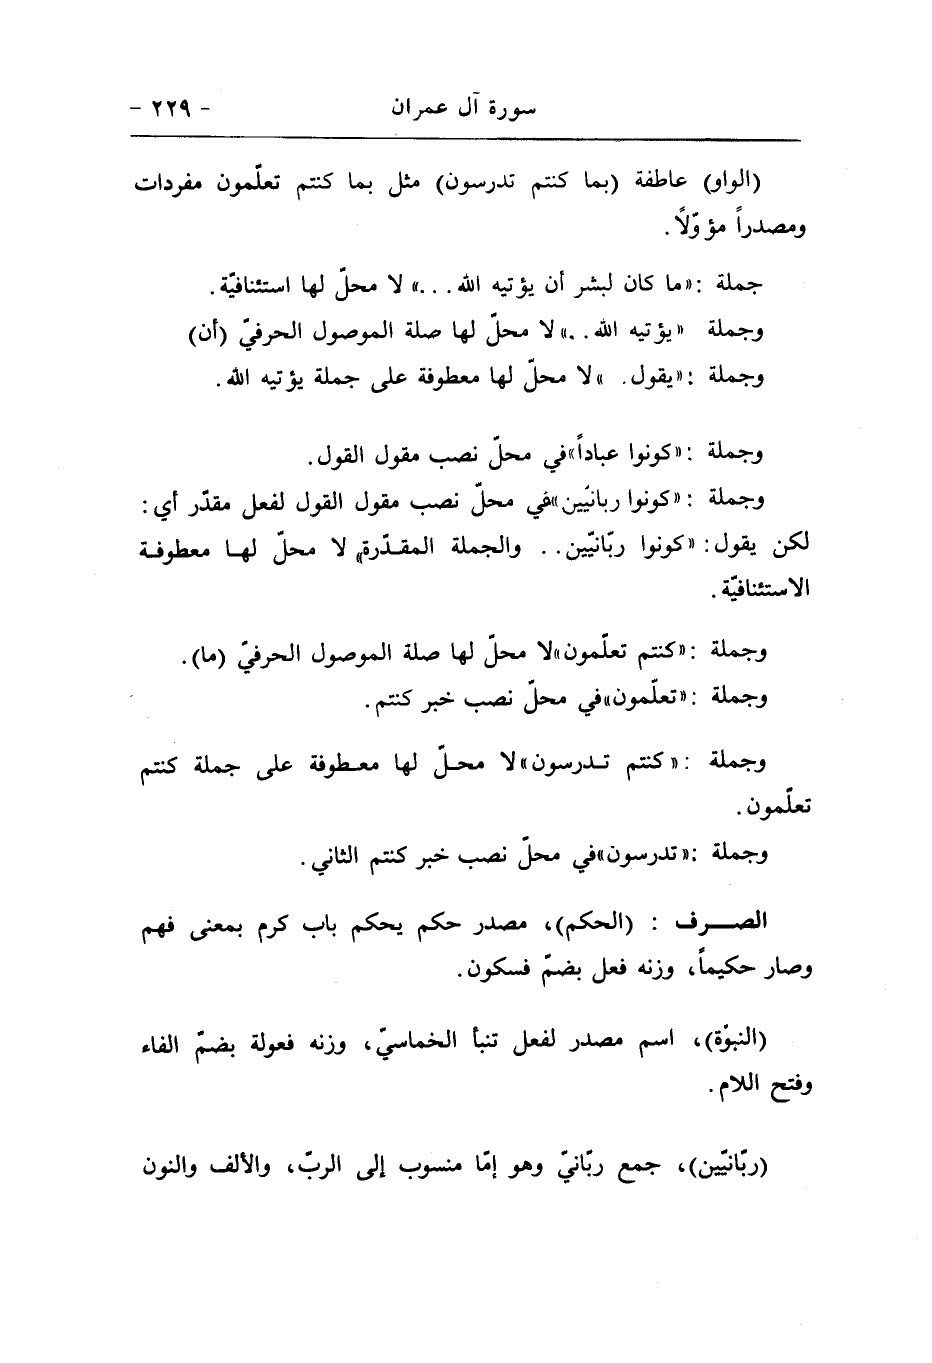 سورة آل عمران - ٢٢٩ -
(الواو) عاطفة (بما كنتم تدرسون) مثل بما كنتم تعلّمون مفردات
ومصدراً مؤوّلاً.
جملة :«ما كان لبشر أن يؤتيه الله...» لا محلّ لها استئنافيّة.
وجملة «يؤتيه الله..» لا محلّ لها صلة الموصول الحرفيّ (أن)
وجملة :«يقول. » لا محلّ لها معطوفة على جملة يؤتيه الله.
وجملة :«كونوا عباداً»في محلّ نصب مقول القول.
وجملة :«كونوا ربانيّين»في محلّ نصب مقول القول لفعل مقدّر أي:
لكن يقول: «كونوا ربّانيّين.. والجملة المقدّرة» لا محلّ لها معطوفة
الاستئنافيّة.
وجملة :«كنتم تعلّمون»لا محلّ لها صلة الموصول الحرفيّ (ما).
وجملة :«تعلّمون»في محلّ نصب خبر كنتم.
وجملة :«كنتم تدرسون»لا محلّ لها معطوفة على جملة كنتم
تعلّمون.
وجملة :«تدرسون»في محلّ نصب خبر كنتم الثاني.
الصرف : (الحكم)، مصدر حكم يحكم باب كرم بمعنى فهم
وصار حكيماً، وزنه فعل بضمّ فسكون.
(النبوّة)، اسم مصدر لفعل تنبأ الخماسيّ، وزنه فعولة بضمّ الفاء
وفتح اللام.
(ربّانيّين)، جمع ربّانيّ وهو إمّا منسوب إلى الربّ، والألف والنون